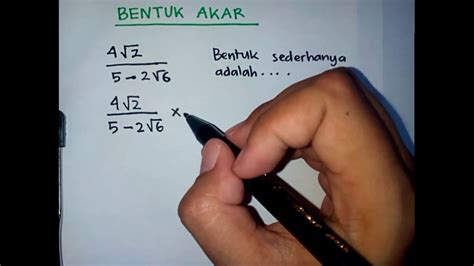 BENTUK AKAR
4√2
5 - 2√6
Bentuk sederhanya
adalah....
4√2
5 - 2√6
×